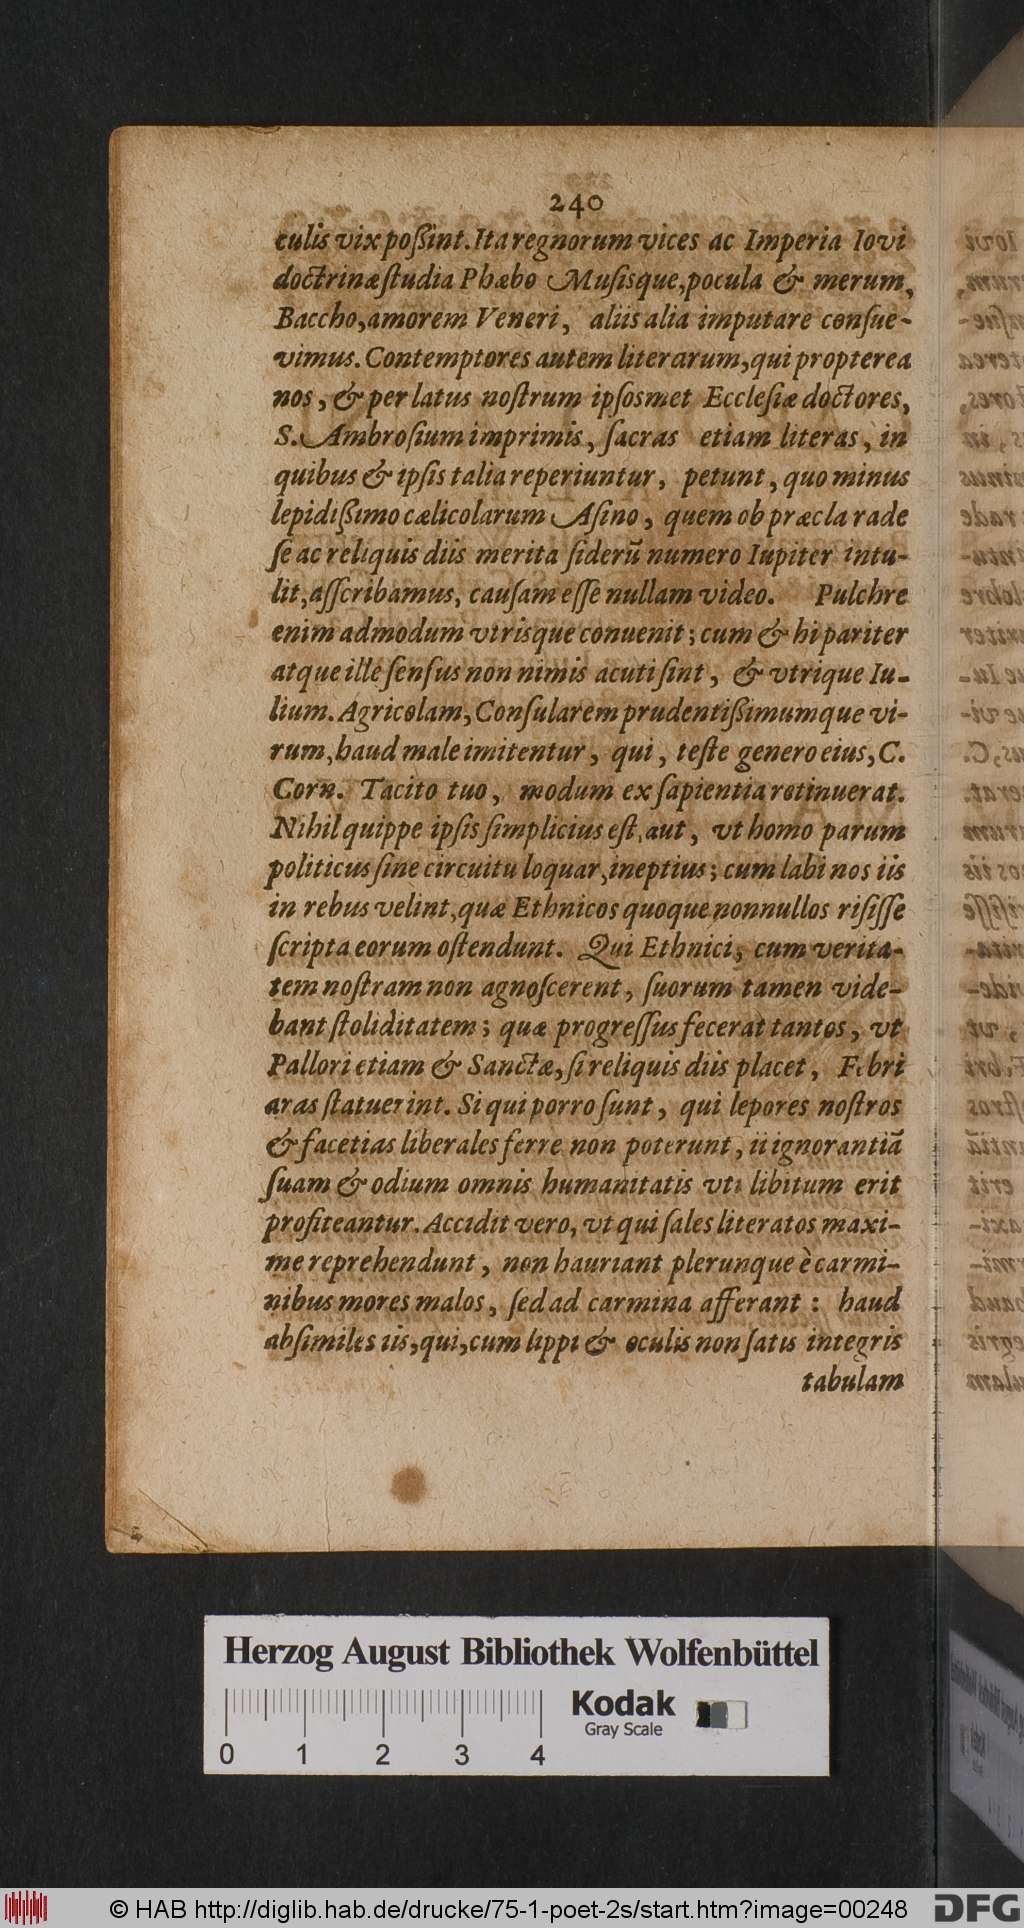 240
culis vix poßint. Ita regnorum vices ac Imperia Iovi
doctrinæ ſtudia Phæbo Muſisque, pocula & merum,
Baccho, amorem Veneri, aliis alia imputare conſue-
vimus. Contemptores autem literarum, qui propterea
nos, & per latus noſtrum ipſosmet Eccleſiæ doctores,
S. Ambroſium imprimis, ſacras etiam literas, in
quibus & ipſis talia reperiuntur, petunt, quo minus
lepidißimo cælicolarum Aſino, quem ob præcla ra de
ſe ac reliquis diis merita ſiderũ numero Iupiter intu-
lit, aſſcribamus, cauſam eſſe nullam video. Pulchre
enim admodum vtrisque conuenit; cum & hi pariter
atque ille ſenſus non nimis acuti ſint, & vtrique Iu-
lium. Agricolam, Conſularem prudentißimumque vi-
rum, haud male imitentur, qui, teſte genero eius, C.
Corn. Tacito tuo, modum ex ſapientia retinuerat.
Nihil quippe ipſis ſimplicius eſt, aut, vt homo parum
politicus ſine circuitu loquar, ineptius; cum labi nos iis
in rebus velint, quæ Ethnicos quoque nonnullos riſiſſe
ſcripta eorum oſtendunt. Qui Ethnici, cum verita-
tem noſtram non agnoſcerent, ſuorum tamen vide-
bant ſtoliditatem; quæ progreſſus fecerat tantos, vt
Pallori etiam & Sanctæ, ſi reliquis diis placet, Febri
aras ſtatuerint. Si qui porro ſunt, qui lepores noſtros
& facetias liberales ferre non poterunt, ii ignorantiã
ſuam & odium omnis humanitatis vti libitum erit
profiteantur. Accidit vero, vt qui ſales literatos maxi-
me reprehendunt, non hauriant plerunque è carmi-
nibus mores malos, ſed ad carmina afferant: haud
abſimiles iis, qui, cum lippi & oculis non ſatis integris
tabulam
Herzog August Bibliothek Wolfenbüttel
Kodak
Gray Scale
0 1 2 3 4
© HAB http://diglib.hab.de/drucke/75-1-poet-2s/start.htm?image=00248
DFG